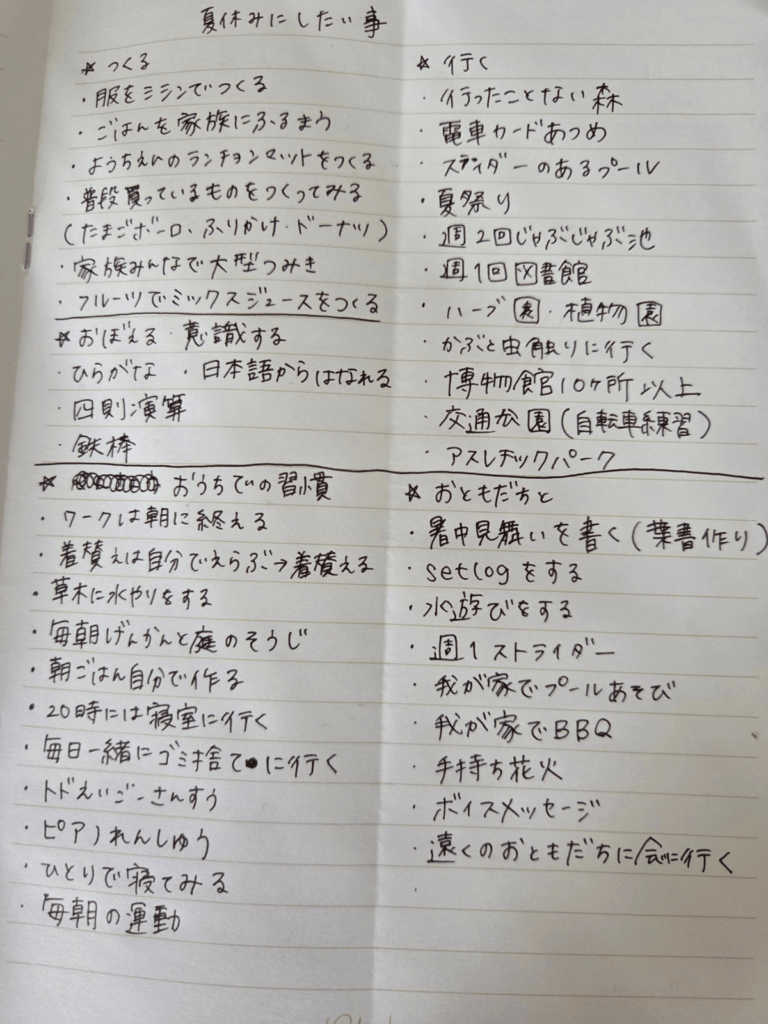 夏休みにしたい事
☆ つくる
・服をミシンでつくる
・ごはんを家族にふるまう
・ようちえんのランチョンマットをつくる
・普段買っているものをつくってみる
(たまごボーロ、ふりかけ・ドーナツ)
・家族みんなで大型つみき
・フルーツでミックスジュースをつくる
☆おぼえる・意識する
・ひらがな ・日本語からはなれる
・四則演算
・鉄棒
☆ 行く
・行ったことない森
・電車カードあつめ
・スライダーのあるプール
・夏祭り
・週2回じゃぶじゃぶ池
・週1回図書館
・ハーブ園・植物園
・かぶと虫触りに行く
・博物館10ヶ所以上
・交通公園(自転車練習)
・アスレチックパーク
☆ おうちでの習慣
・ワークは朝に終える
・着替えは自分でえらぶ→着替える
・草木に水やりをする
・毎朝げんかんと庭のそうじ
・朝ごはん自分で作る
・20時には寝室に行く
・毎日一緒にゴミ捨てに行く
・トドえいごーさんすう
・ピアノれんしゅう
・ひとりで寝てみる
・毎朝の運動
☆ おともだちと
・暑中見舞いを書く(葉書作り)
・setlogをする
・水遊びをする
・週1ストライダー
・我が家でプールあそび
・我が家でBBQ
・手持ち花火
・ボイスメッセージ
・遠くのおともだちに会いに行く
・